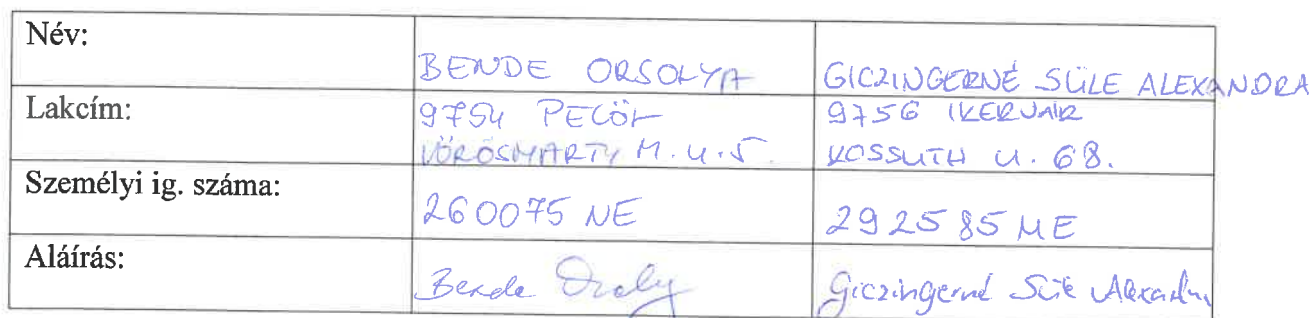 Név:
BENDE ORSOLYA
GICZINGERNÉ SÜLE ALEXANDRA
Lakcím:
9754 PECÖL
VÖRÖSMARTY M. u. 5.
9756 IKERVÁR
KOSSUTH u. 68.
Személyi ig. száma:
260075 NE
292585 ME
Aláírás:
Bende Orsoly
Giczingerné Süle Alexandra